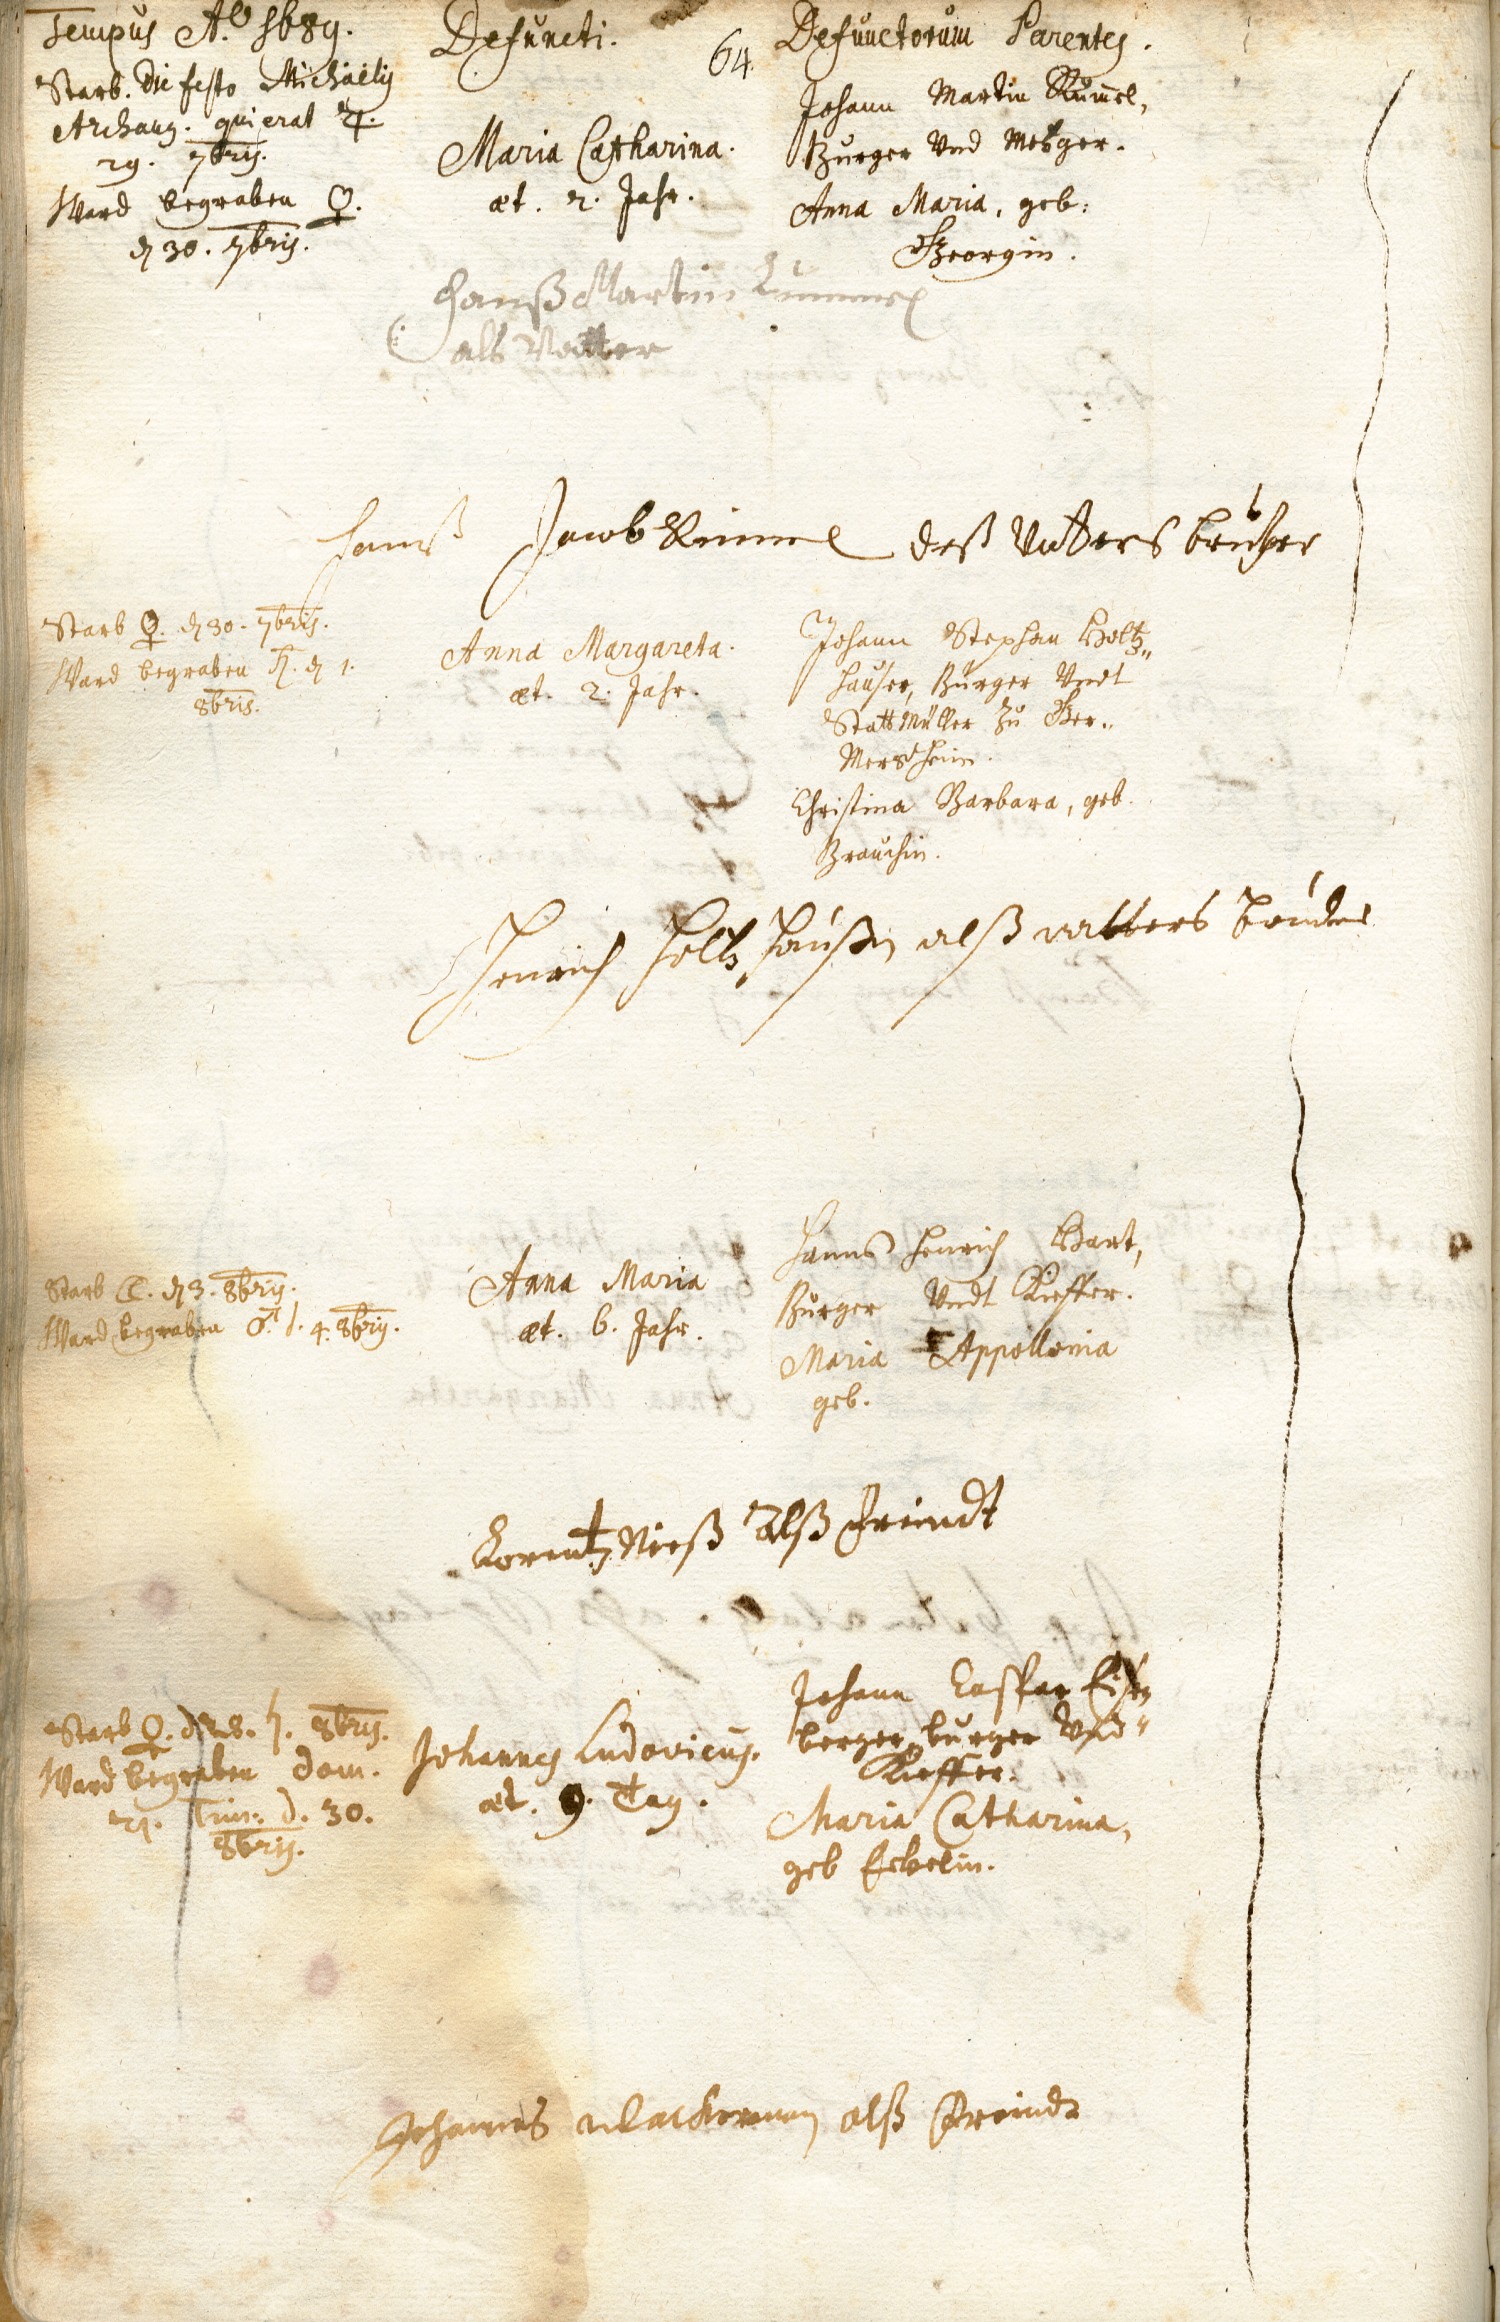 Tempus Aō. 1689.
Defuncti.
64.
Defunctorum Parentes.
Starb. die festo Michaëlis
Archang. qui erat ♃.
29. 7bris.
Ward begraben ♀.
d. 30. 7bris.
Maria Catharina.
æt. 2. Jahr.
Johann Martin Kümel,
Burger Vnd Metzger.
Anna Maria, geb:
Georgin.
Hanß Martin Kümmel
als Vatter
Hanß Jacob Kimmel deß Vatters bruder
Starb ♀. d. 30. 7bris.
Ward begraben ♄. d. 1.
8bris.
Anna Margareta.
æt. 2. Jahr.
Johann Stephan Holtz„
hauser, Burger Vndt
Statt Müller zu Ger„
Mersheim.
Christina Barbara, geb.
Brauchin.
Henrich Holtz„haußen alß vatters bruder
Starb ☾. d. 3. 8bris.
Ward begraben ♂. d. 4. 8bris.
Anna Maria
æt. 6. Jahr.
Hanns Henrich Hart,
Burger Vndt Kieffer.
Maria Appollonia
geb.
Lorentz Nieß Alß Freindt
Starb ♀. d. 28. 8bris.
Ward begraben Dom.
21. Trin: d. 30.
8bris.
Johannes Ludovicus.
æt. 9. Tag.
Johann Caspar Eisen
berger, burger Vnd
Kieffer.
Maria Catharina,
geb
Johannes Ackerman alß Freindt